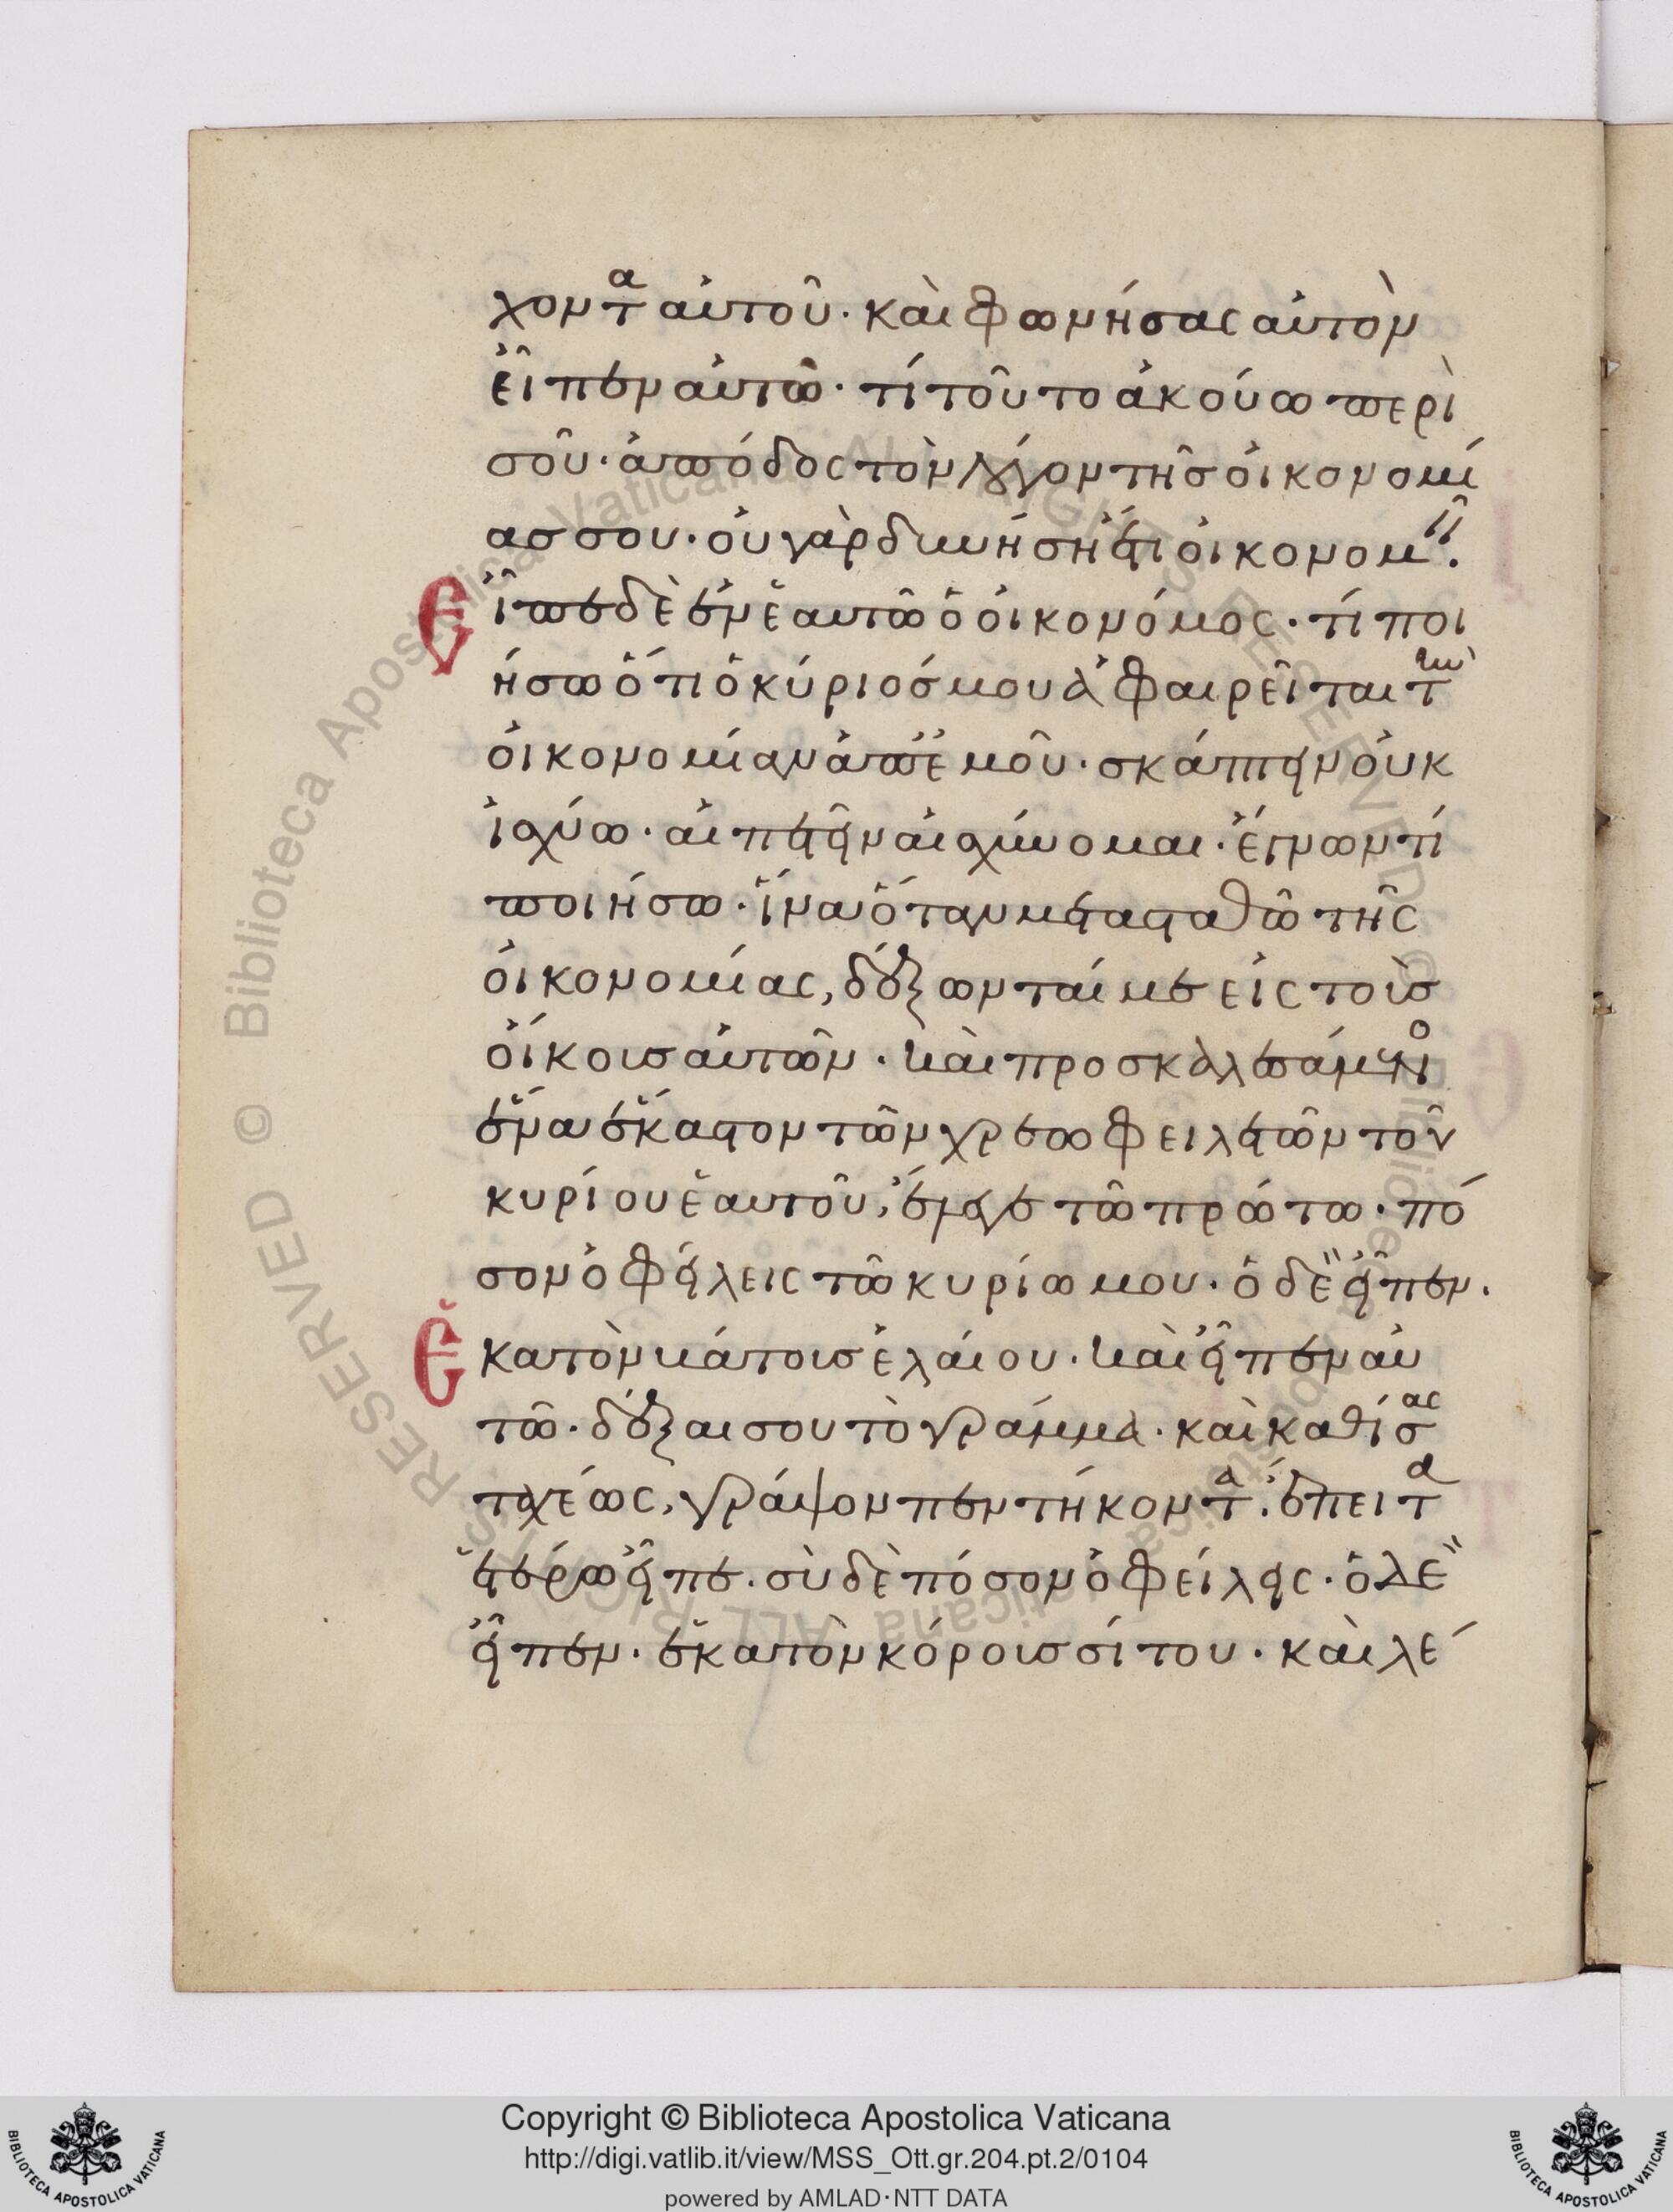 χοντα αὐτοῦ· καὶ φωνήσας αὐτὸν
εἶπεν αὐτῶ· τί τοῦτο ἀκούω περὶ
σοῦ· ἀπόδος τὸν λόγον τῆσ οἰκονομί
ασ σου· οὐ γὰρ δυνήσῃ ἔτι οἰκονομεῖν.
Εἶπε δὲ ἐν ἑαυτῶ ὁ οἰκονόμος· τί ποι
ήσω ὅτι ὁ κύριόσ μου ἀφαιρεῖται τὴν
οἰκονομίαν ἀπ ἐμοῦ· σκάπτειν οὐκ
ἰσχύω· ἐπαιτεῖν αἰσχύνομαι· ἔγνων τί
ποιήσω· ἵνα ὅταν μετασταθῶ τῆς
οἰκονομίας, δέξωνταί με εἰς τοὺσ
οἴκουσ αὐτῶν· καὶ προσκαλεσάμενο
ἕνα ἕκαστον τῶν χρεοφειλετῶν τοῦ
κυρίου ἑαυτοῦ, ἔλεγε τῶ πρώτω· πό
σον ὀφείλεις τῶ κυρίω μου· ὁ δὲ εἶπεν.
Ἑκατὸν βάτουσ ἐλαίου· καὶ εἶπεν αὐ
τῶ· δέξαι σου τὸ γράμμα· καὶ καθίσας
ταχέως, γράψον πεντήκοντα· ἔπειτα
ἑτέρω εἶπε· σὺ δὲ πόσον ὀφείλεις· ὁ δὲ
εἶπεν· ἑκατὸν κόρουσ σίτου· καὶ λέ
Copyright © Biblioteca Apostolica Vaticana
http://digi.vatlib.it/view/MSS_Ott.gr.204.pt.2/0104
powered by AMLAD·NTT DATA
BIBLIOTECA APOSTOLICA VATICANA
BIBLIOTECA APOSTOLICA VATICANA